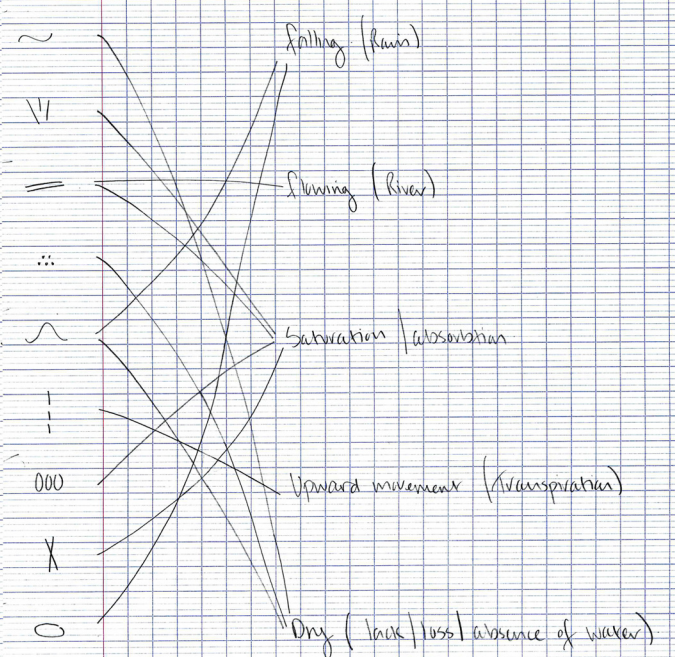 falling (Rain)
flowing (River)
Saturation / absorbtion
Upward movement (Transpiration)
Dry ( lack / loss / absence of water)